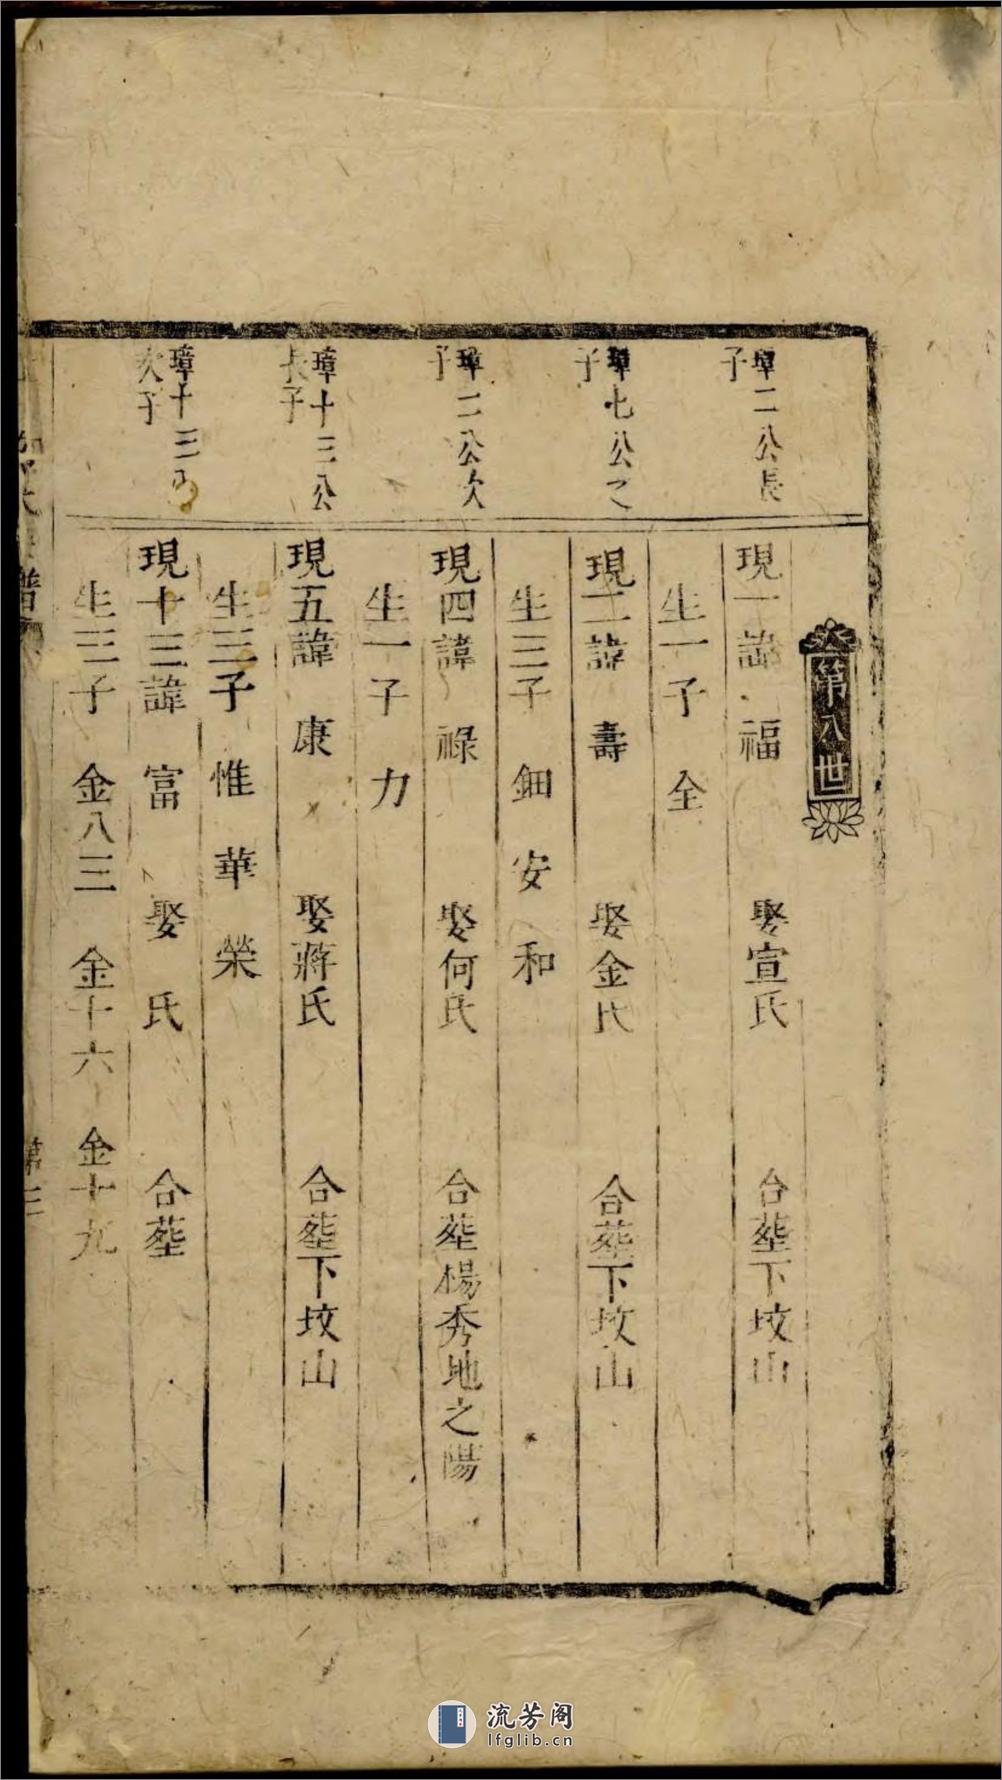 第八世
璋二公長
子
現一諱福 娶宣氏 合塟下坟山
生一子 全
璋七公之
子
現二諱壽 娶金氏 合塟下坟山
生三子 鈿 安 和
璋二公次
子
現四諱祿 娶何氏 合塟楊秀地之陽
生一子 力
璋十三公
長子
現五諱康 娶蔣氏 合塟下坟山
生三子 惟 華 榮
璋十三公
次子
現十三諱富 娶 氏 合塟
生三子 金八三 金十六 金十九
譜
第三
流芳阁
lfglib.cn